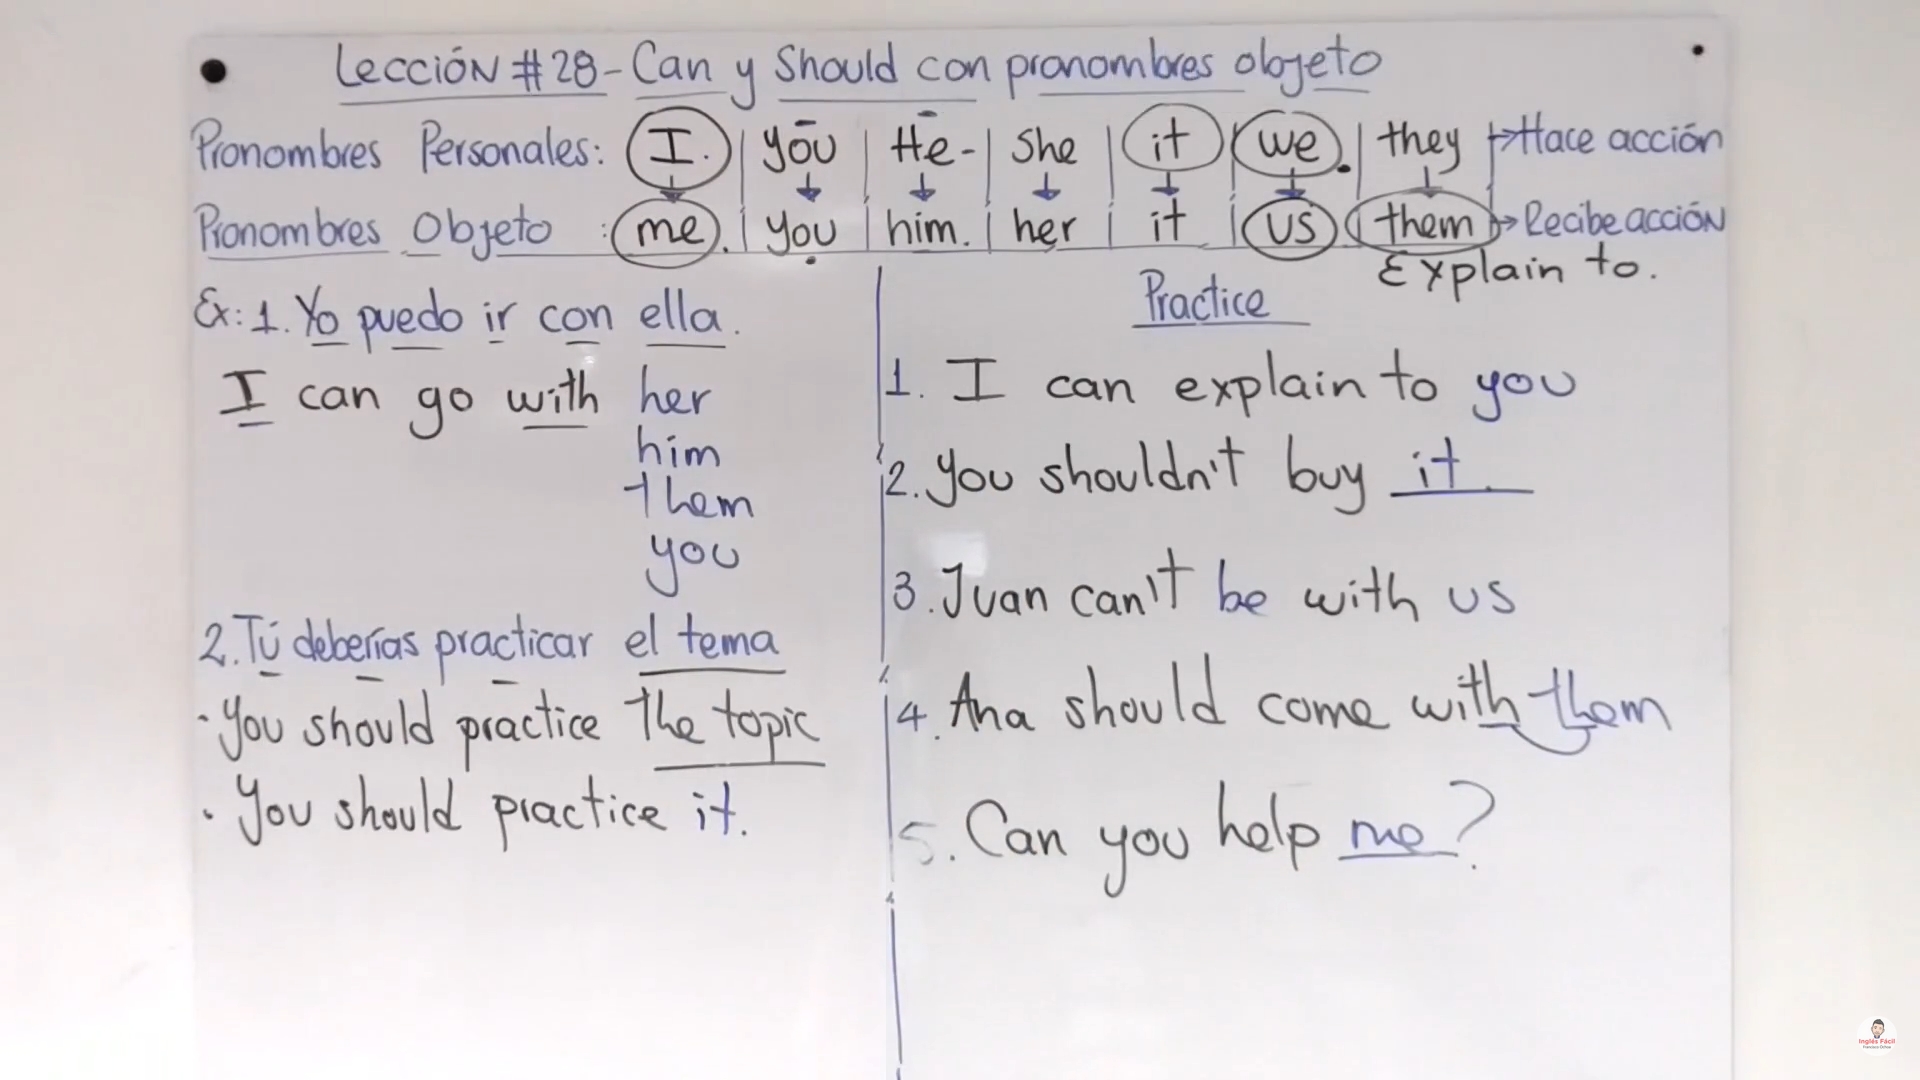 Lección #28 - Can y Should con pronombres objeto
Pronombres Personales: I. | you | He - | she | it | we. | they → Hace acción
Pronombres Objeto : me. | you | him. | her | it | us | them → Recibe acción
Explain to.
Ex: 1. Yo puedo ir con ella.
I can go with her
him
them
you
2. Tú deberías practicar el tema
· You should practice the topic
· You should practice it.
Practice
1. I can explain to you
2. You shouldn't buy it.
3. Juan can't be with us
4. Ana should come with them
5. Can you help me?
Inglés Fácil